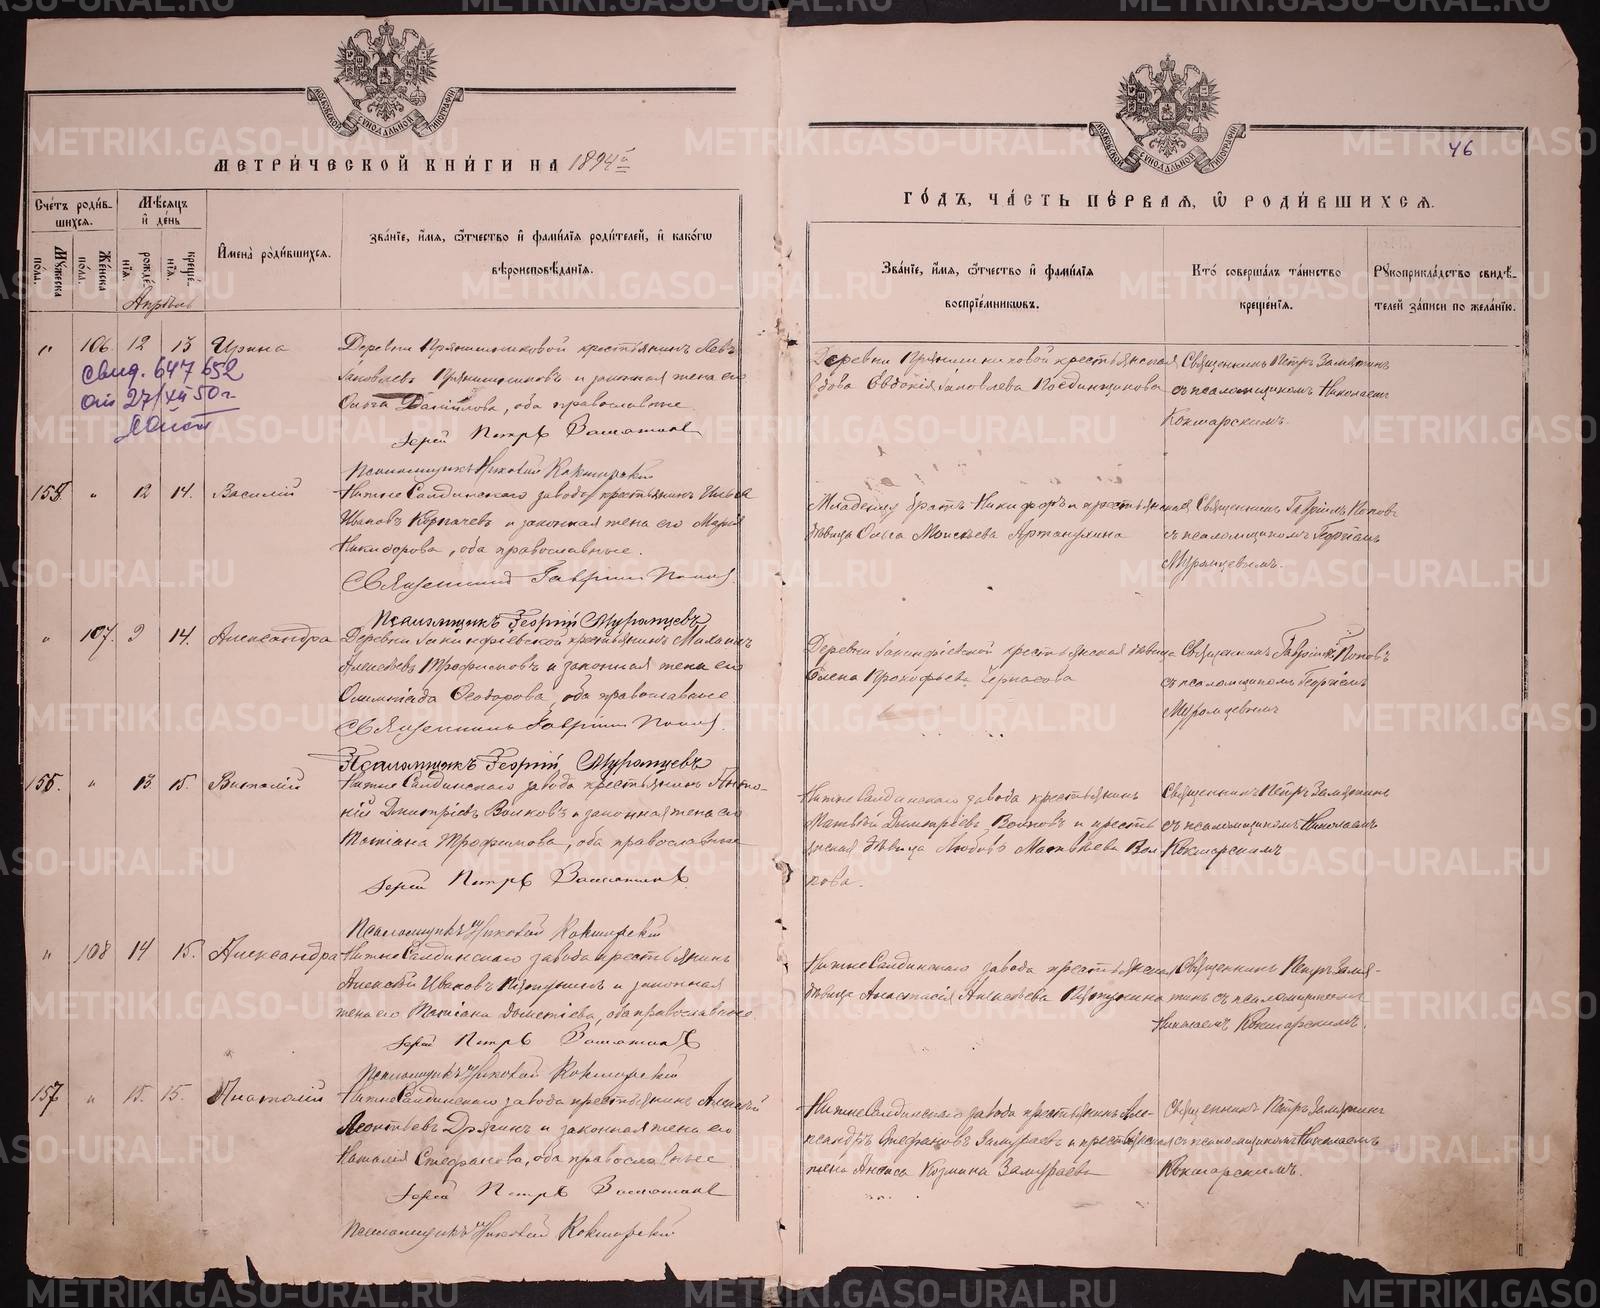 МОСКОВСКОЙ СѴНОДАЛЬНОЙ ТИПОГРАФІИ
МЕТРИ́ЧЕСКОЙ КНИ́ГИ НА 1894й
Сче́тъ роди́в-
шихся.
Мѣ́сяцъ
и҆ де́нь
Мꙋ́жеска по́ла.
Же́нска по́ла.
рожде́нїѧ.
креще́нїѧ.
Апрѣль
И҆мена̀ роди́вшихсѧ.
Зва́нїе, и҆́мѧ, ѻ҆́тчество и҆ фами́лїѧ роди́телей, и҆ како́гѡ
вѣроисповѣ́данїѧ.
" 106 12 13 Ирина
свид. 647652
от 27/XII 50 г
Деревни Прянишниковой крестьянинъ Левъ
Яковлевъ Прянишниковъ и законная жена его
Ольга Даніилова, оба православные
Іерей Петръ Замятинъ
Псаломщикъ Николай Кокшарскій
158 " 12 14. Василій
Нижне Салдинскаго завода крестьянинъ Илья
Ивановъ Корпачевъ и законная жена его Марія
Никифорова, оба православные.
Священникъ Гавріилъ Поповъ.
Псаломщикъ Георгій Муромцевъ
" 107. 9 14. Александра
Деревни Іакинфіевской крестьянинъ Михаилъ
Алексѣевъ Трофимовъ и законная жена его
Олимпіада Ѳеодорова, оба православные
Священникъ Гавріилъ Поповъ.
Псаломщикъ Георгій Муромцевъ
156. " 13 15. Виталій
Нижне Салдинскаго завода крестьянинъ Анто-
ній Димитріевъ Волковъ и законная жена его
Татіана Трофимова, оба православные
Іерей Петръ Замятинъ
Псаломщикъ Николай Кокшарскій
" 108 14 15. Александра
Нижне Салдинскаго завода крестьянинъ
Алексѣй Ивановъ и законная
жена его Татіана Дометіева, оба православные
Іерей Петръ Замятинъ
Псаломщикъ Николай Кокшарскій
157 " 15. 15. Анатолій
Нижне Салдинскаго завода крестьянинъ Алексѣй
Леонтьевъ Дрягинъ и законная жена его
Наталія Стефанова, оба православные
Іерей Петръ Замятинъ
Псаломщикъ Николай Кокшарскій
МОСКОВСКОЙ СѴНОДАЛЬНОЙ ТИПОГРАФІИ
46
ГО́ДЪ, ЧА́СТЬ ПЕ́РВАѦ, Ѡ҆ РОДИ́ВШИХСѦ.
Зва́нїе, и҆́мѧ, ѻ҆́тчество и҆ фами́лїѧ
воспрїе́мникѡвъ.
Кто̀ соверша́лъ та́инство
креще́нїѧ.
Рꙋкоприкла́дство свидѣ́-
телей за́писи по жела́нїю.
Деревни Прянишниковой крестьянская
вдова Евдокія Яковлева
Священникъ Петръ Замятинъ
съ псаломщикомъ Николаемъ
Кокшарскимъ.
Младенцу братъ Никифоръ и крестьянская
дѣвица Ольга Моисѣева Артамухина
Священникъ Гавріилъ Поповъ
съ псаломщикомъ Георгіемъ
Муромцевымъ.
Деревни Іакинфіевской крестьянская дѣвица
Елена Прокофьева
Священникъ Гавріилъ Поповъ
съ псаломщикомъ Георгіемъ
Муромцевымъ
Нижне Салдинскаго завода крестьянинъ
Матвѣй Димитріевъ Волковъ и кресть
янская дѣвица Любовь Матвѣева Вол
кова.
Священникъ Петръ Замятинъ
съ псаломщикомъ Николаемъ
Кокшарскимъ
Нижне Салдинскаго завода крестьянская
дѣвица Анастасія Алексѣева
Священникъ Петръ Замя-
тинъ съ псаломщикомъ
Николаемъ Кокшарскимъ.
Нижне Салдинскаго завода крестьянинъ Але-
ксандръ Стефановъ Замураевъ и крестьянская
жена Анфиса Козмина Замураева
Священникъ Петръ Замятинъ
съ псаломщикомъ Николаемъ
Кокшарскимъ.
METRIKI.GASO-URAL.RU